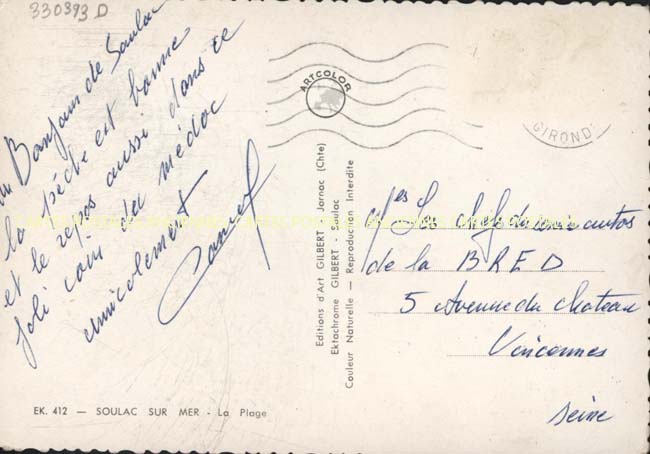 330393 D
un Bonjour de Soulac
la pêche est bonne
et le repos aussi dans ce
joli coin du médoc
amicalement
ARTCOLOR
GIROND
Editions d'Art GILBERT - Jarnac (Chte)
Ektachrome GILBERT - Soulac
Couleur Naturelle — Reproduction Interdite
Mes Les Chefs
de la BRED
5 Avenue du Chateau
Vincennes
Seine
EK. 412 — SOULAC SUR MER - La Plage